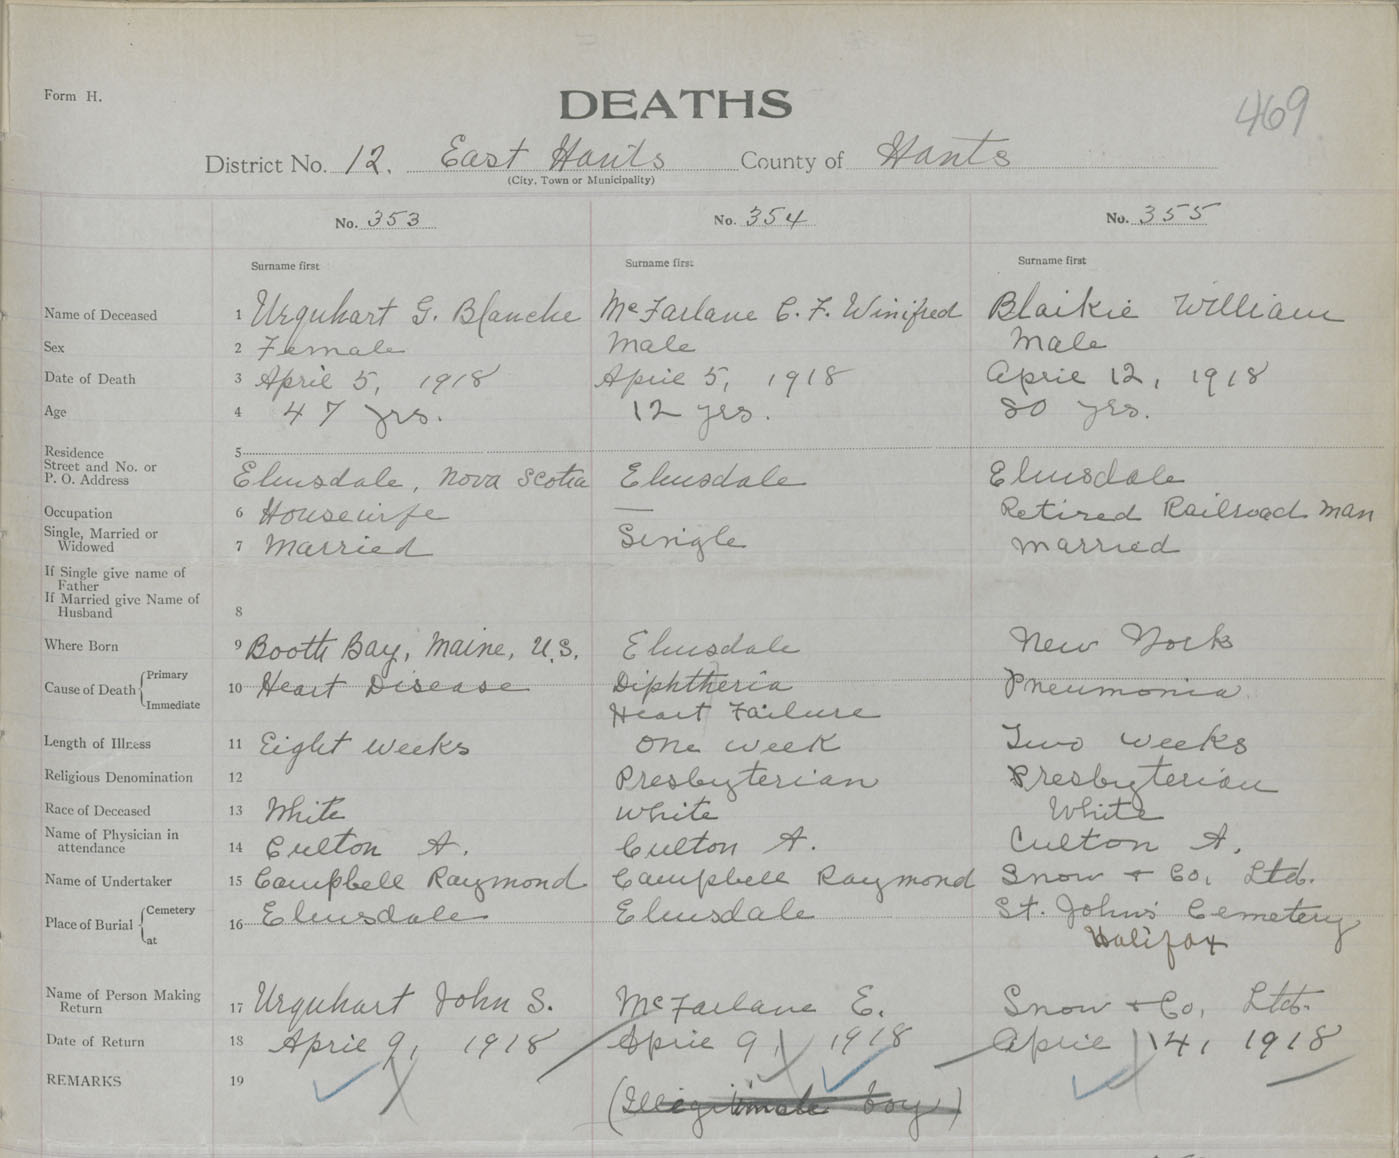 Form H.
DEATHS
469
District No. 12. East Hants County of Hants
(City, Town or Municipality)
No. 353 No. 354 No. 355
Surname first Surname first Surname first
Name of Deceased 1 Urquhart G. Blanche McFarlane C. F. Winifred Blaikie William
Sex 2 Female Male Male
Date of Death 3 April 5, 1918 April 5, 1918 April 12, 1918
Age 4 47 yrs. 12 yrs. 80 yrs.
Residence 5
Street and No. or
P. O. Address Elmsdale, Nova Scotia Elmsdale Elmsdale
Occupation 6 Housewife — Retired Railroad man
Single, Married or
Widowed 7 Married Single married
If Single give name of
Father
If Married give Name of
Husband 8
Where Born 9 Booth Bay, Maine, U.S. Elmsdale New York
Cause of Death Primary 10 Heart Disease Diphtheria Pneumonia
Immediate Heart Failure
Length of Illness 11 Eight weeks One week Two weeks
Religious Denomination 12 Presbyterian Presbyterian
Race of Deceased 13 White White White
Name of Physician in
attendance 14 Culton A. Culton A. Culton A.
Name of Undertaker 15 Campbell Raymond Campbell Raymond Snow & Co., Ltd.
Place of Burial Cemetery 16 Elmsdale Elmsdale St. John's Cemetery
at Halifax
Name of Person Making
Return 17 Urquhart John S. McFarlane E. Snow & Co, Ltd.
Date of Return 18 April 9, 1918 April 9, 1918 April 14, 1918
REMARKS 19
(Illegitimate boy)